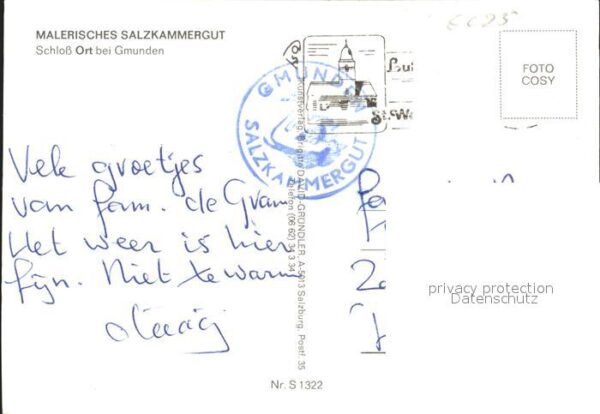 MALERISCHES SALZKAMMERGUT
Schloß Ort bei Gmunden
FOTO
COSY
GMUNDEN
SALZKAMMERGUT
St. Wo
Vele groetjes
van fam. de
Het weer is hier
fijn. Niet te warm
Kunstverlag Brigitte DAVID-GRÜNDLER, A-5013 Salzburg, Postf. 35
Telefon (06 62) 34 3 34
privacy protection
Datenschutz
Nr. S 1322